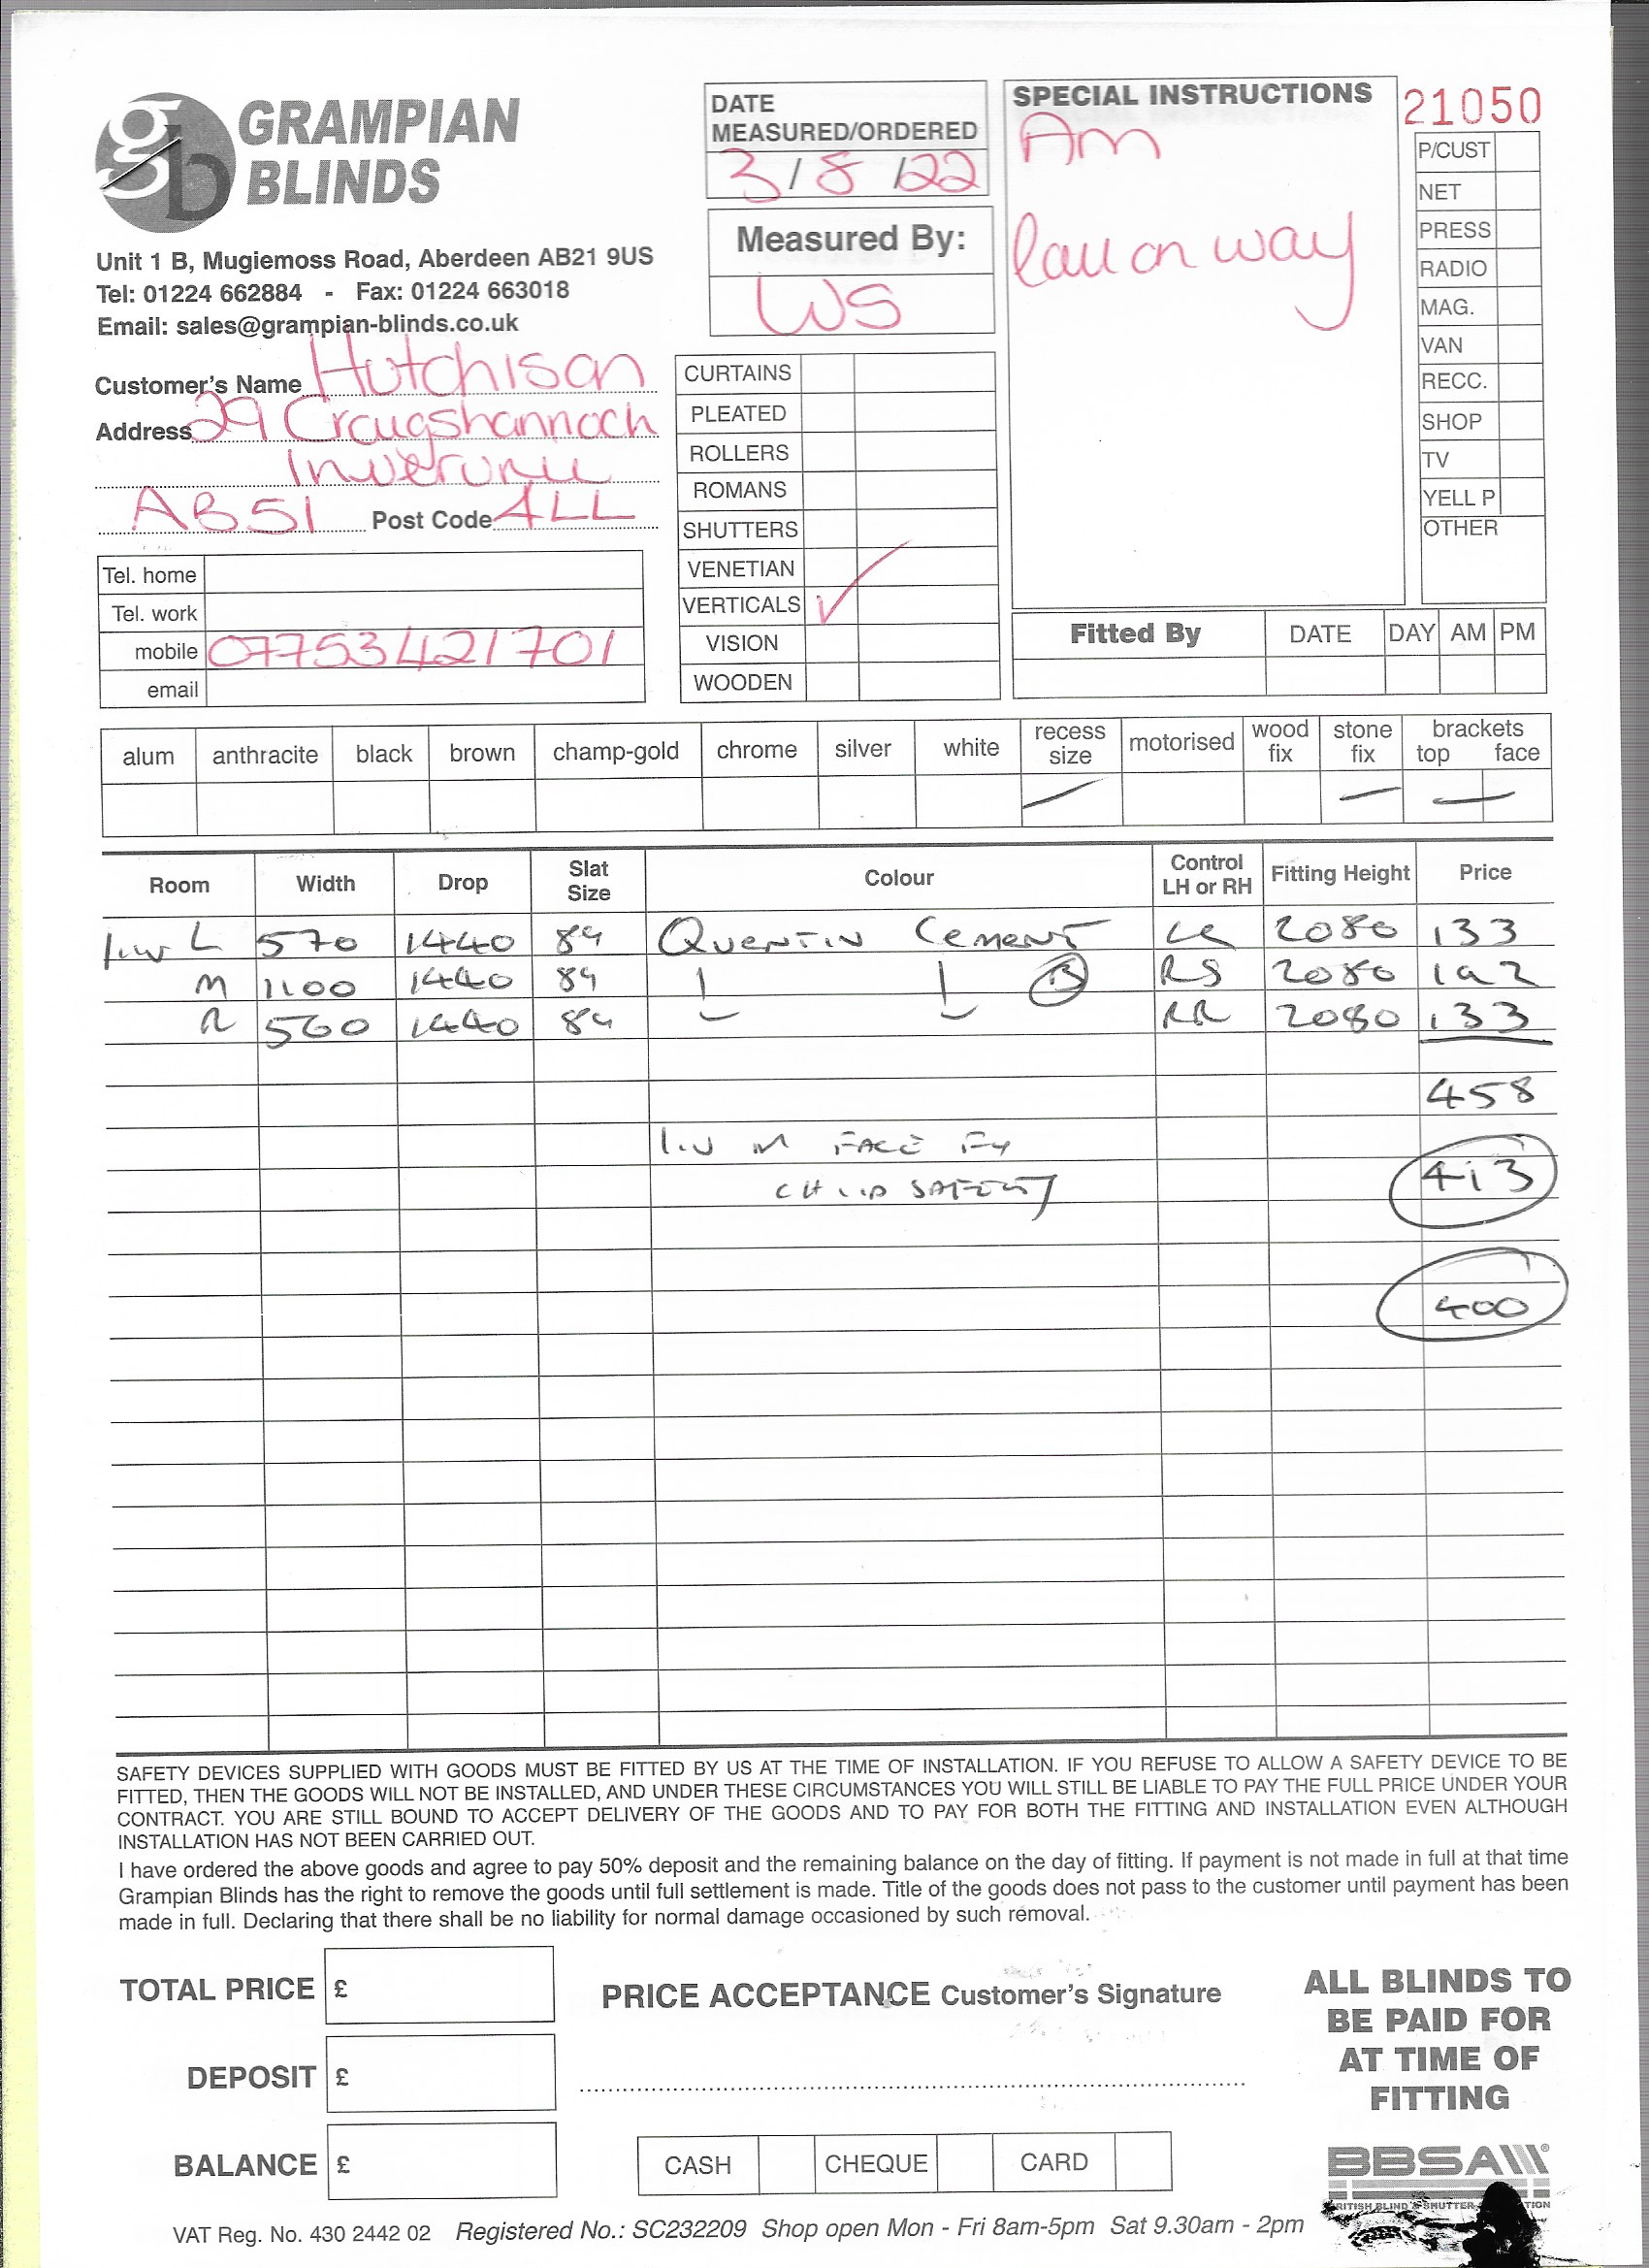 GRAMPIAN
BLINDS
Unit 1 B, Mugiemoss Road, Aberdeen AB21 9US
Tel: 01224 662884 - Fax: 01224 663018
Email: sales@grampian-blinds.co.uk
DATE
MEASURED/ORDERED
3/8/22
Measured By:
WS
SPECIAL INSTRUCTIONS
Am
Call on way
21050
P/CUST
NET
PRESS
RADIO
MAG.
VAN
RECC.
SHOP
TV
YELL P
OTHER
Customer's Name Hutchison
Address 29 Craigshannoch
Inverurie
AB51 Post Code 4LL
Tel. home
Tel. work
mobile 07753421701
email
CURTAINS
PLEATED
ROLLERS
ROMANS
SHUTTERS
VENETIAN
VERTICALS ✓
VISION
WOODEN
Fitted By DATE DAY AM PM
alum anthracite black brown champ-gold chrome silver white recess size motorised wood fix stone fix brackets top face
Room Width Drop Slat Size Colour Control LH or RH Fitting Height Price
L 570 1440 89 QUENTIN CEMENT 2080 133
M 1100 1440 89 B RS 2080 192
R 560 1440 89 RR 2080 133
458
M FACE
CHILD SAFETY
413
400
SAFETY DEVICES SUPPLIED WITH GOODS MUST BE FITTED BY US AT THE TIME OF INSTALLATION. IF YOU REFUSE TO ALLOW A SAFETY DEVICE TO BE
FITTED, THEN THE GOODS WILL NOT BE INSTALLED, AND UNDER THESE CIRCUMSTANCES YOU WILL STILL BE LIABLE TO PAY THE FULL PRICE UNDER YOUR
CONTRACT. YOU ARE STILL BOUND TO ACCEPT DELIVERY OF THE GOODS AND TO PAY FOR BOTH THE FITTING AND INSTALLATION EVEN ALTHOUGH
INSTALLATION HAS NOT BEEN CARRIED OUT.
I have ordered the above goods and agree to pay 50% deposit and the remaining balance on the day of fitting. If payment is not made in full at that time
Grampian Blinds has the right to remove the goods until full settlement is made. Title of the goods does not pass to the customer until payment has been
made in full. Declaring that there shall be no liability for normal damage occasioned by such removal.
TOTAL PRICE £
DEPOSIT £
BALANCE £
PRICE ACCEPTANCE Customer's Signature
CASH CHEQUE CARD
ALL BLINDS TO
BE PAID FOR
AT TIME OF
FITTING
BBSA
VAT Reg. No. 430 2442 02 Registered No.: SC232209 Shop open Mon - Fri 8am-5pm Sat 9.30am - 2pm